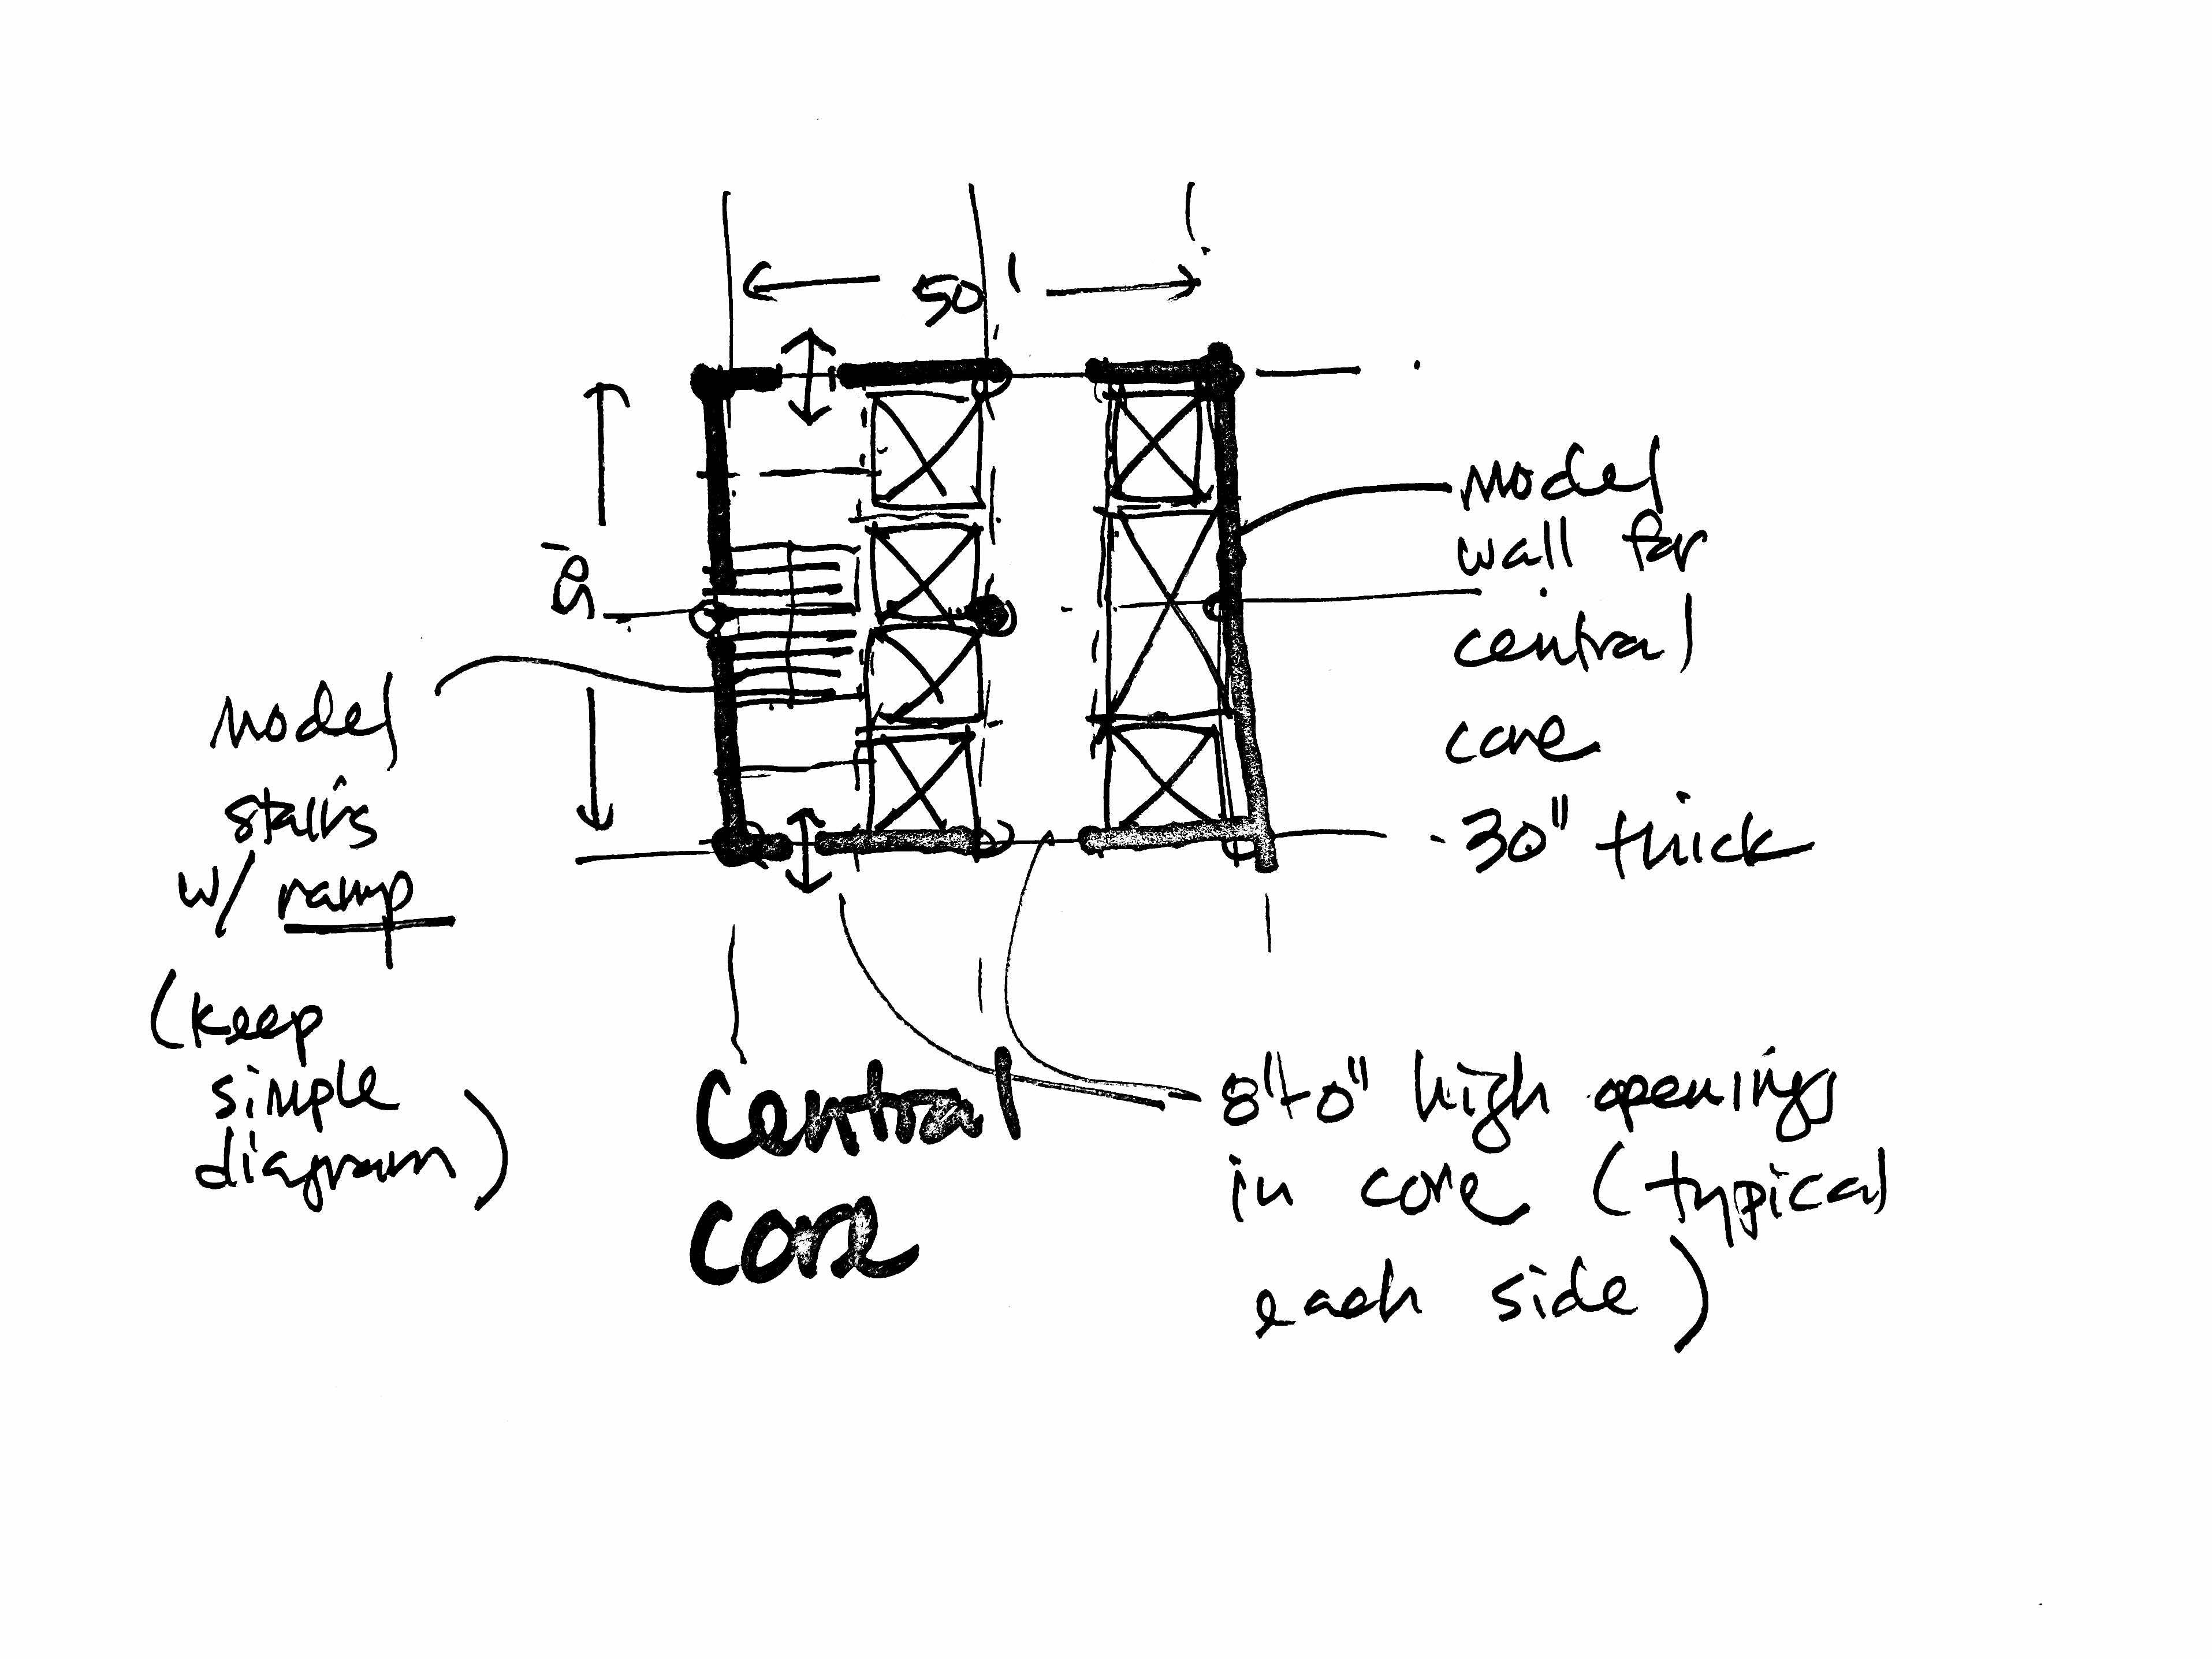 50'
50'
model
wall for
central
core
-30" thick
model
stairs
w/ ramp
(keep
simple
diagram)
central
core
8'+0" high openings
in core (typical
each side)